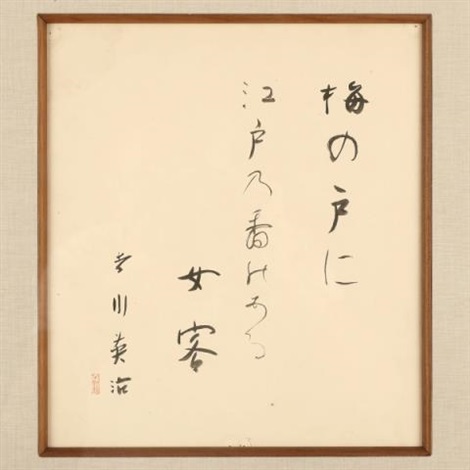 梅の戸に
江戸乃香能ある
女客
吉川英治